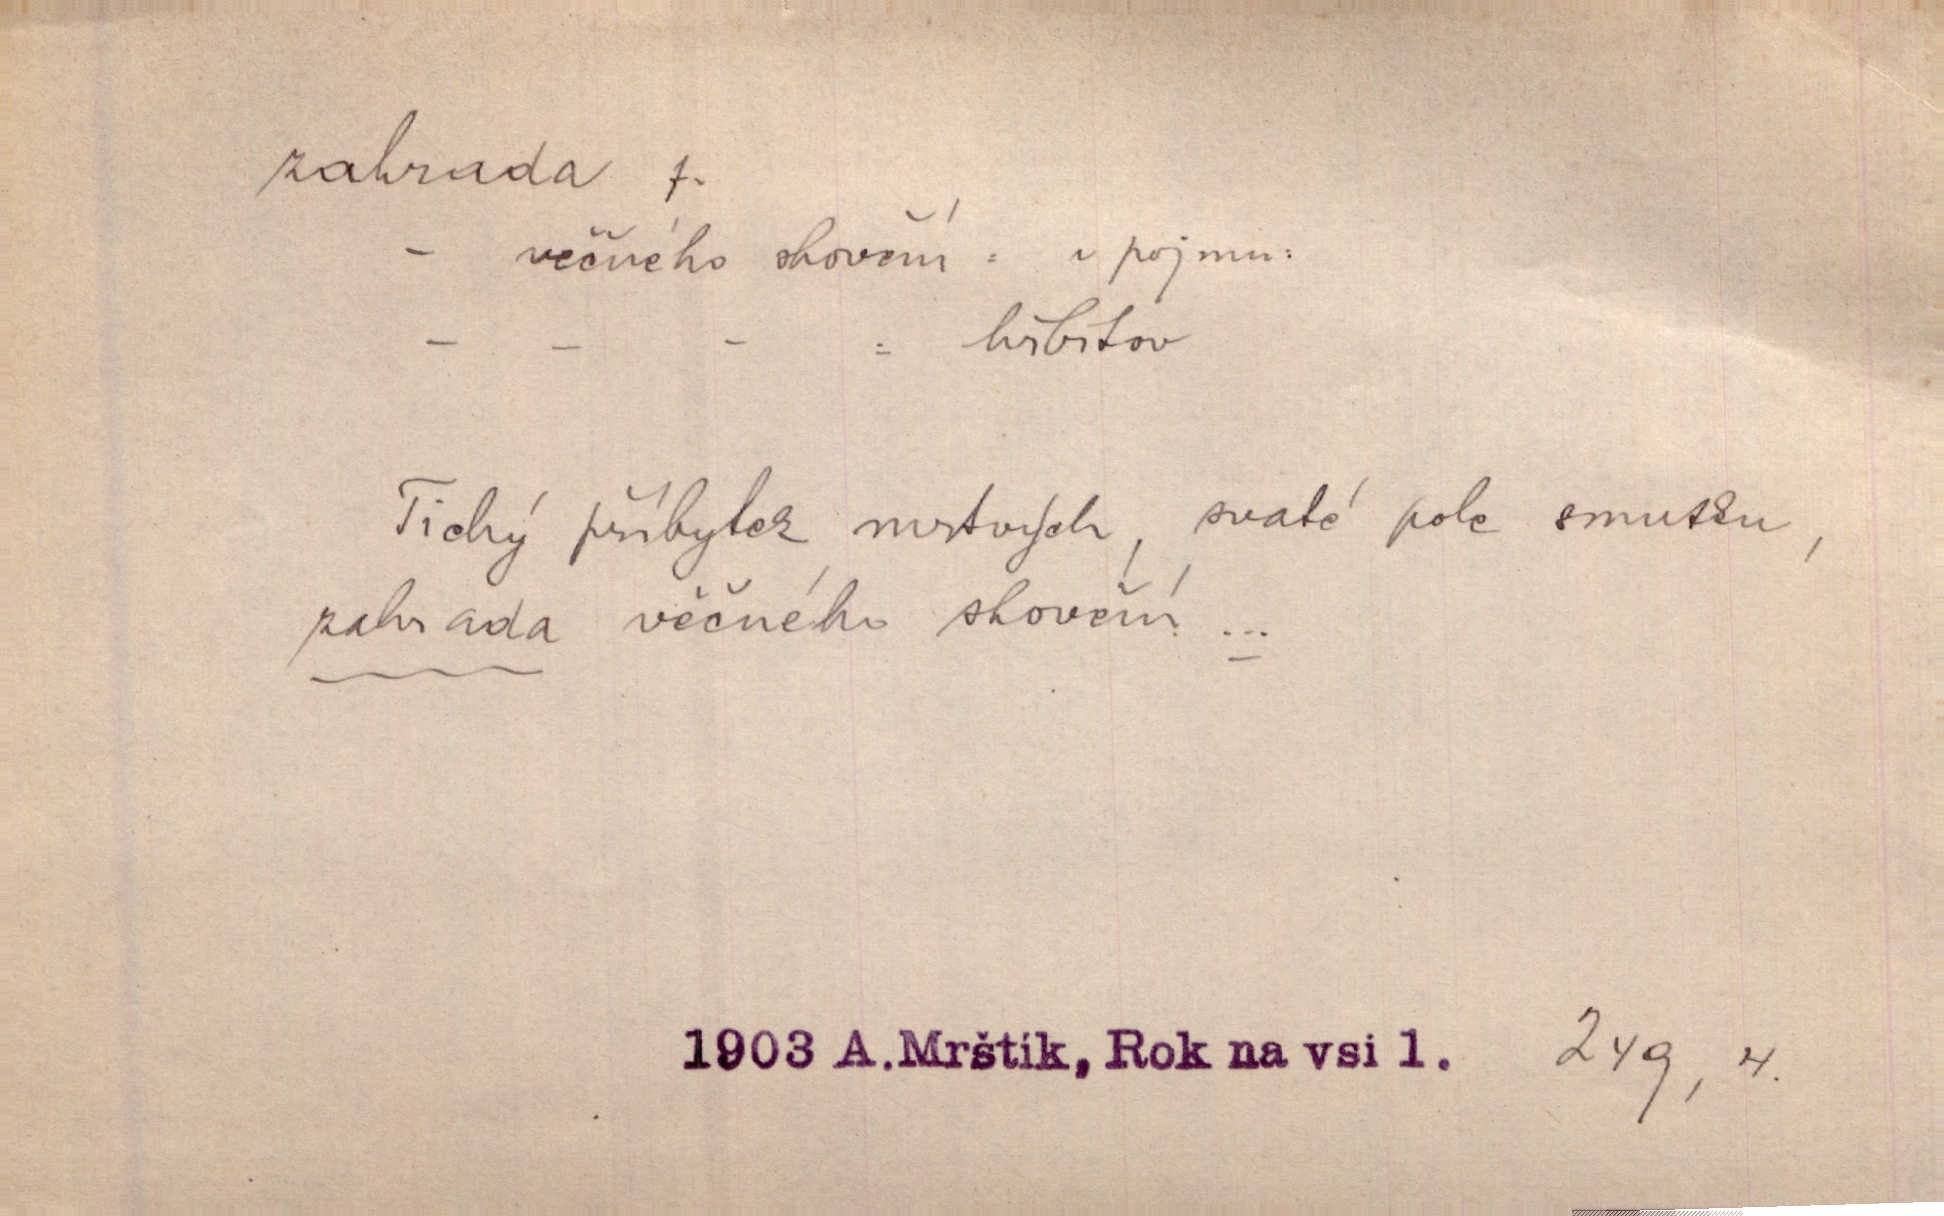 zahrada f.
- věčného shovění = v pojmu:
- - - = hřbitov
Tichý příbytek mrtvých, svaté pole smutku,
zahrada věčného shovění ...
1903 A.Mrštík, Rok na vsi 1. 249, 4.